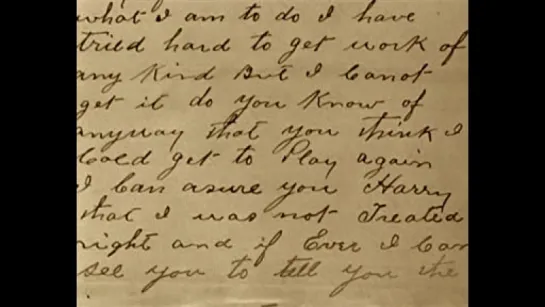 what I am to do I have
tried hard to get work of
any Kind But I Canot
get it do you Know of
anyway that you think I
Cold get to Play again
I Can asure you Harry
that I was not Treated
right and if Ever I Can
see you to tell you the